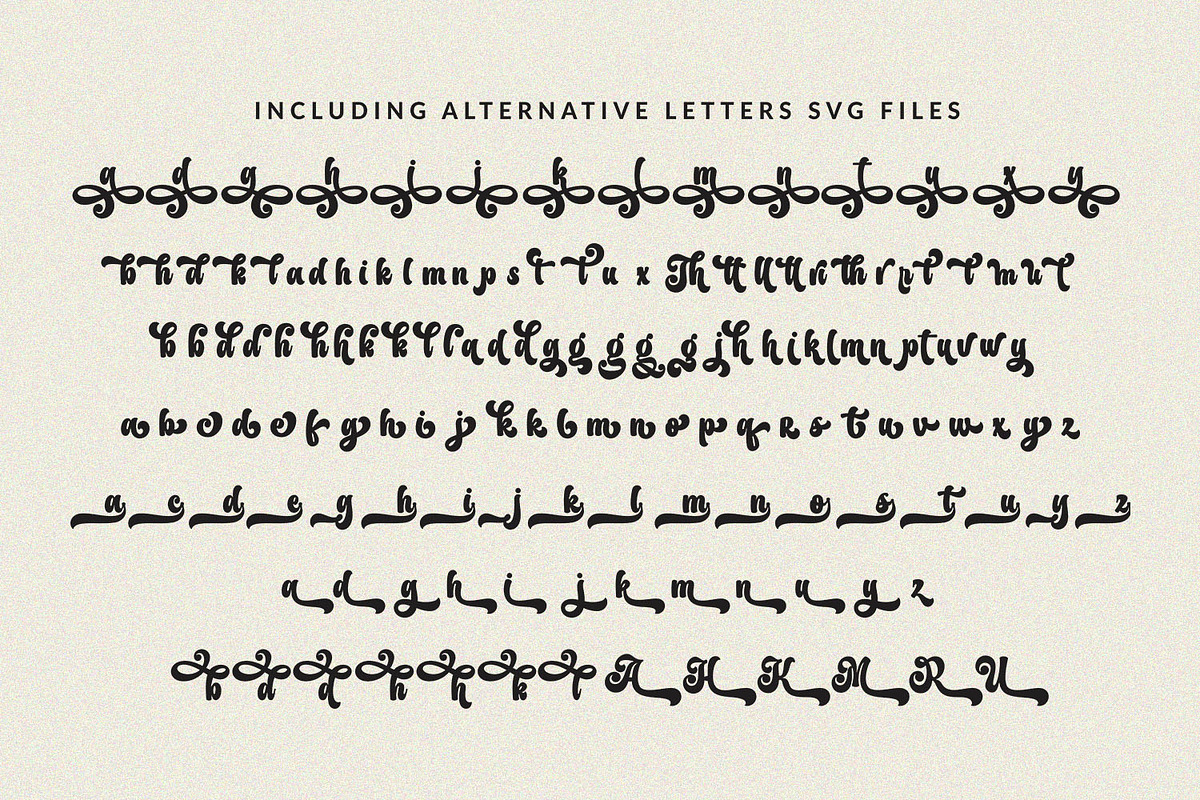 INCLUDING ALTERNATIVE LETTERS SVG FILES
a d g h i j k l m n t u x y
b h d k l a d h i k l m n p s t t u x Th tt ll tt ri th r r t t m u t
b b d d h h h k k l l a d d g g g g g j h h i k l m n p t u v w y
a b c d e f g h i j k k l m n o p q r s t u v w x y z
a c d e g h i j k l m n o s t u y z
a d g h i j k m n u y z
b d d h h k l A H K M R U